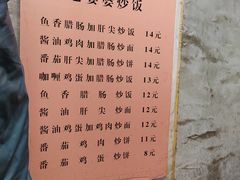 婆婆炒饭
鱼香腊肠加肝尖炒饭 14元
酱油鸡肉加腊肠炒面 14元
番茄肝尖加腊肠炒饼 14元
咖喱鸡蛋加腊肠炒饭 13元
鱼香腊肠炒饭 12元
酱油肝尖炒面 12元
酱油鸡蛋加鸡肉炒面 12元
番茄鸡肉炒饼 11元
番茄鸡蛋炒饼 8元